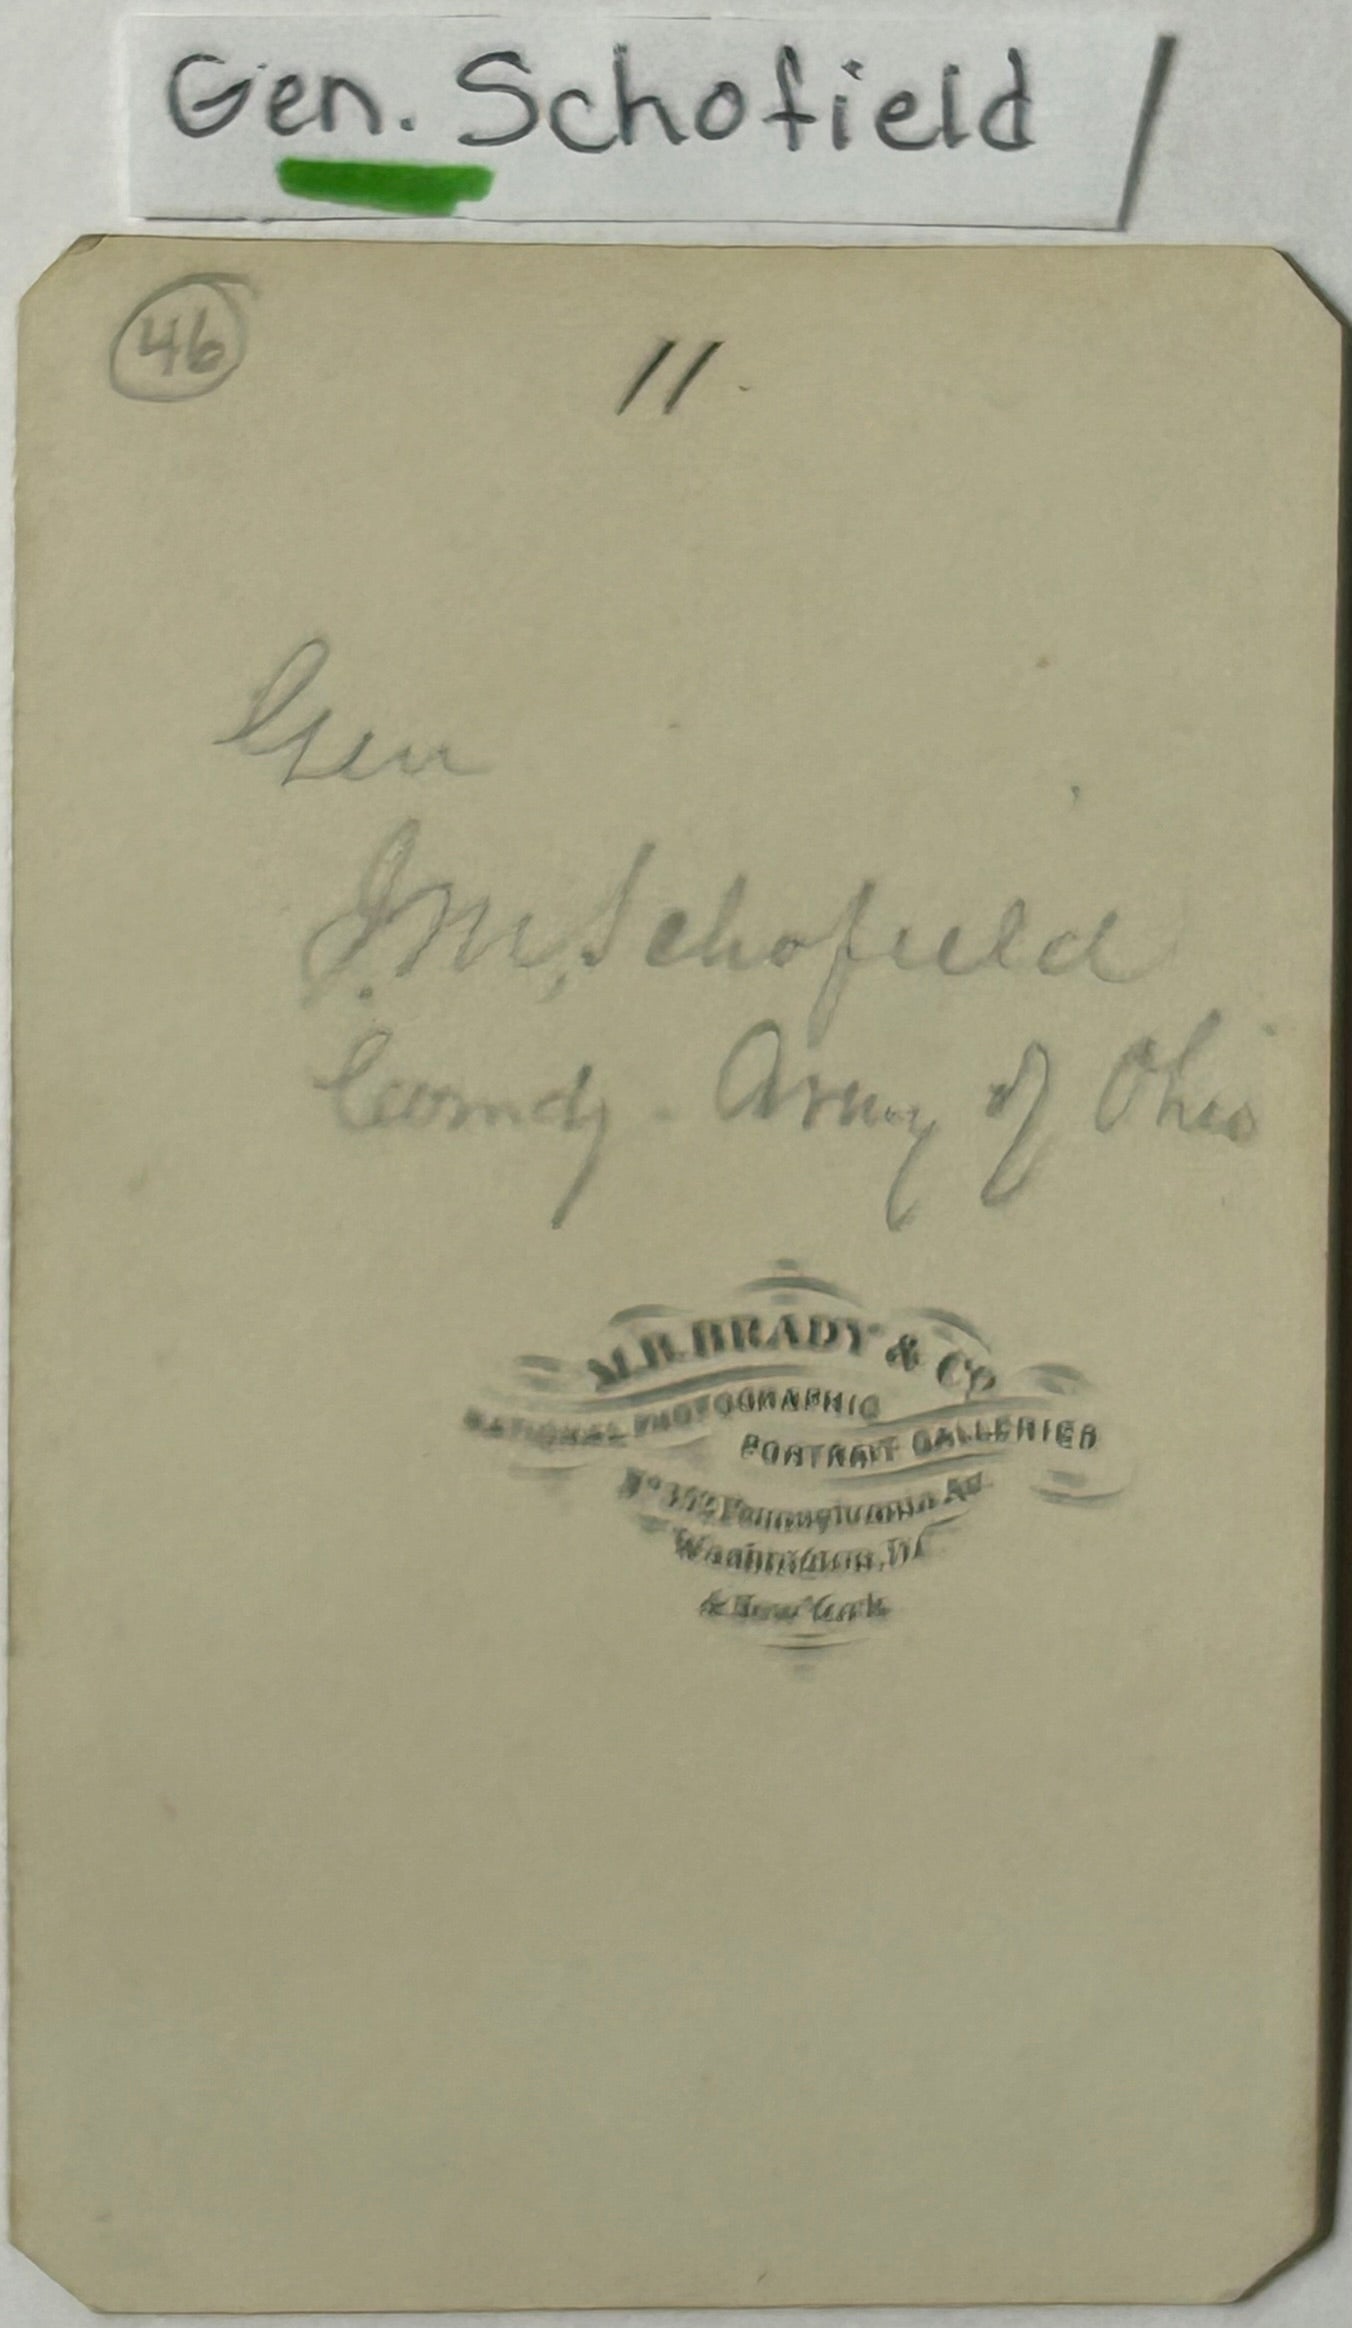 Gen. Schofield
46
11.
Gen
J. M. Schofield
Comdg. Army of Ohio
M.B. BRADY & Co
NATIONAL PHOTOGRAPHIC
PORTRAIT GALLERIES
Pennsylvania Av.
Washington, D.C.
& New York